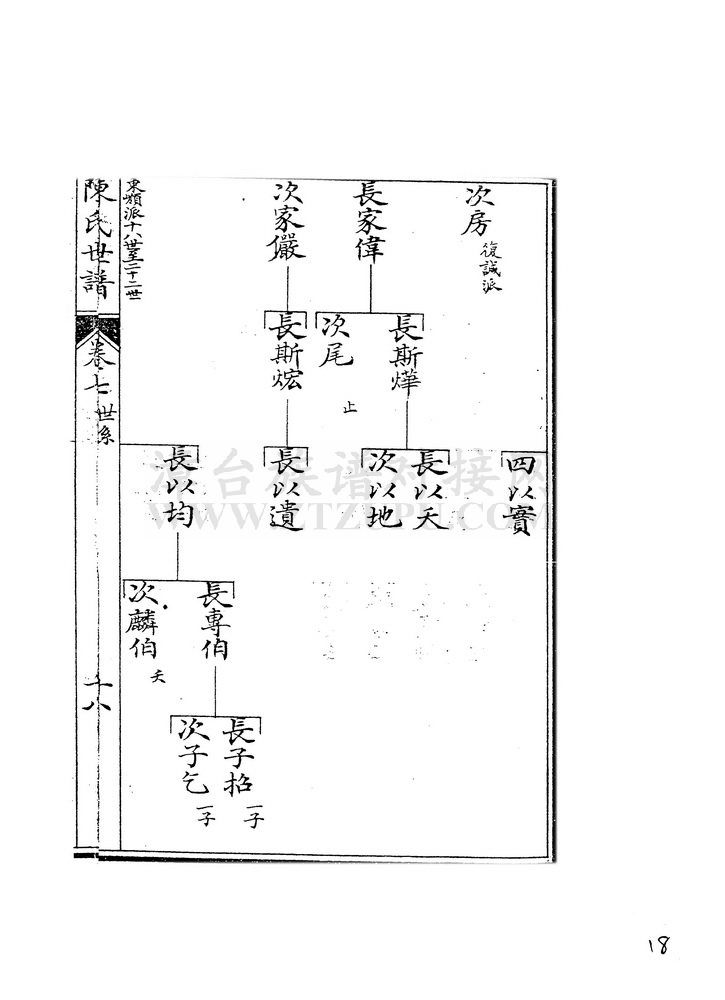 次房
復誠派
長家偉
次家儼
長斯燁
次尾
止
長斯焃
四以實
長以天
次以地
長以遺
長以均
長專伯
次麟伯
夭
長子招
一子
次子乞
一子
東嶺派十八世至二十二世
陳氏世譜
卷七
世系
十八
WWW.ZTZUPU.COM
18